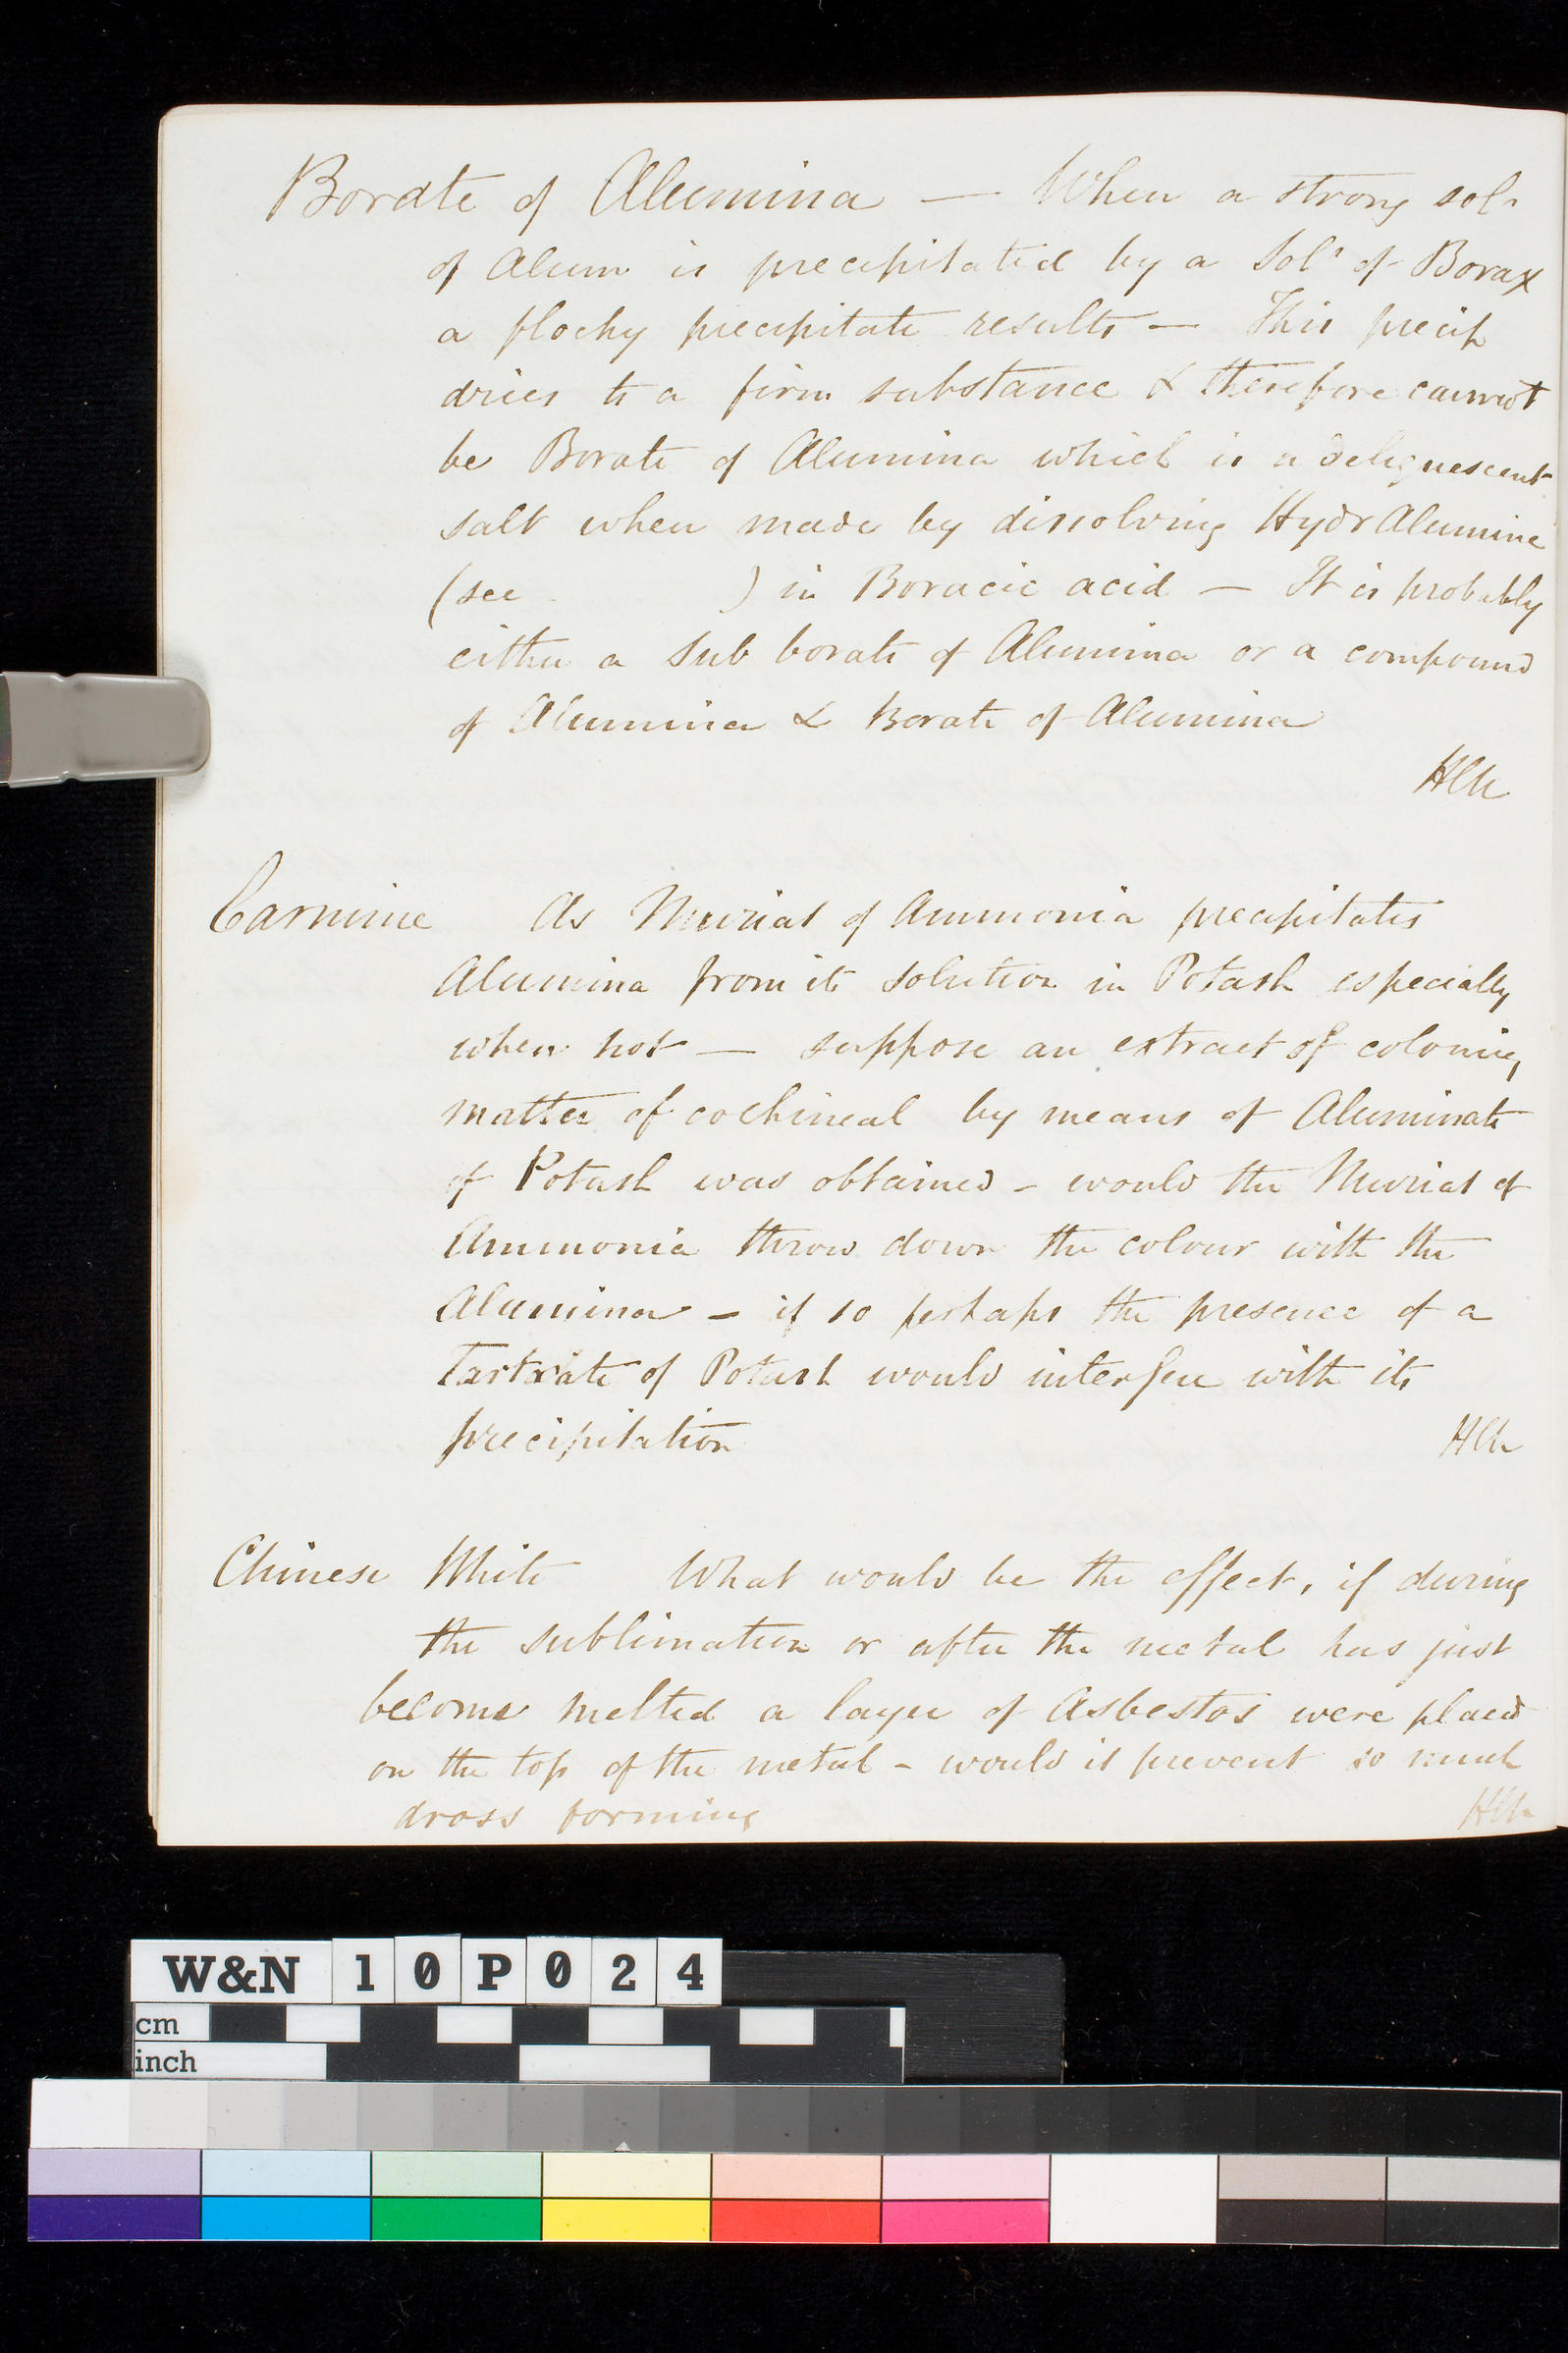 Borate of Alumina — When a strong sol.n
of Alum is precipitated by a Sol.n of Borax
a flocky precipitate results — This precip
dries to a firm substance & therefore cannot
be Borate of Alumina which is a deliquescent
salt when made by dissolving Hydr Alumine
(see ) in Boracic acid — It is probably
either a Sub borate of Alumina or a compound
of Alumina & Borate of Alumina
Carmine As Muriat of Ammonia precipitates
Alumina from its solution in Potash especially
when hot — suppose an extract of coloring
matter of cochineal by means of Aluminate
of Potash was obtained - would the Muriat of
Ammonia throw down the colour with the
Alumina - if so perhaps the presence of a
Tartrate of Potash would interfere with its
precipitation
Chinese White What would be the effect, if during
the sublimation or after the metal has just
become melted a layer of Asbestos were placed
on the top of the metal - would it prevent so much
dross forming
W&N 10P024
cm
inch